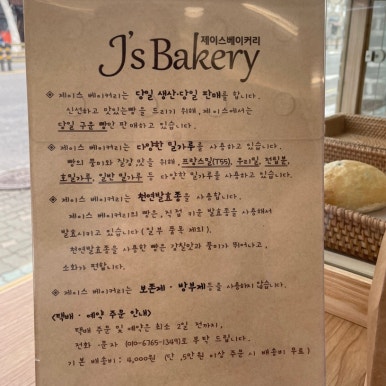 제이스베이커리
J's Bakery
※ 제이스 베이커리는 당일 생산·당일 판매를 합니다.
신선하고 맛있는빵을 드리기 위해, 제이스에서는
당일 구운 빵만 판매하고 있습니다.
※ 제이스 베이커리는 다양한 밀가루를 사용하고 있습니다.
빵의 풍미와 질감, 맛을 위해, 프랑스밀(T55), 우리밀, 전밀분,
호밀가루, 일반 밀가루 등 다양한 밀가루를 사용하고 있습니다.
※ 제이스 베이커리는 천연발효종을 사용합니다.
제이스 베이커리의 빵은, 직접 키운 발효종을 사용해서
발효시키고 있습니다 (일부 품목 제외),
천연발효종을 사용한 빵은 감칠맛과 풍미가 뛰어나고,
소화가 편합니다.
※ 제이스 베이커리는 보존제·방부제등을 사용하지 않습니다.
<택배·예약 주문 안내>
택배 주문 및 예약은 최소 2일 전까지,
전화·문자 (010-6765-1349)로 부탁 드립니다.
기본 배송비 : 4,000원 (단, 5만원 이상 주문 시 배송비 무료)